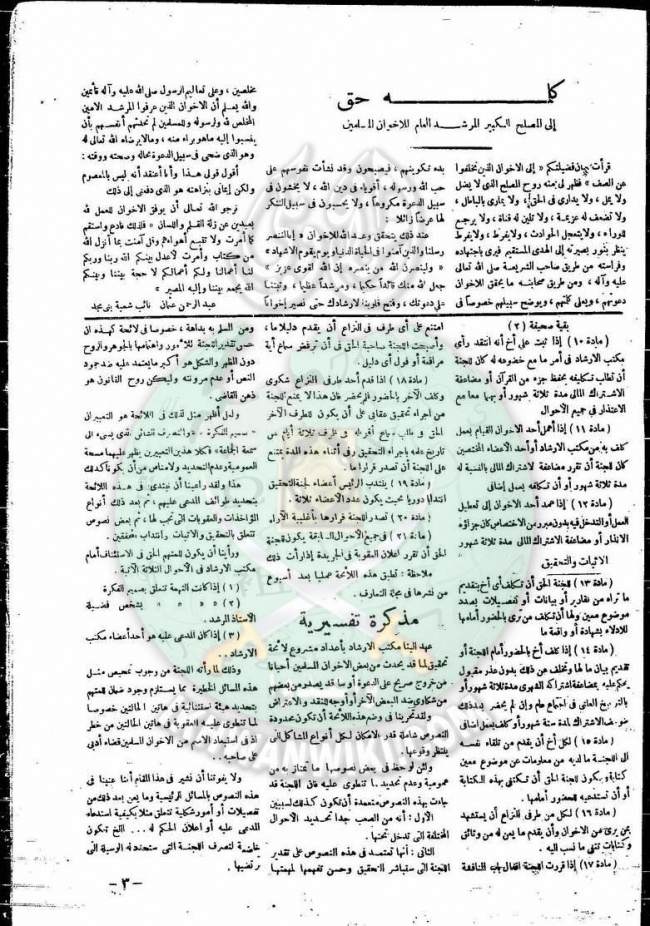 كلمة حق
إلى المصلح الكبير المرشد العام للاخوان المسلمين
قرأت بيان فضيلتكم « إلى الاخوان الذين تخلفوا
عن الصف » فظهر لى بمعنه روح المصلح الذى لا يضل
ولا يمل ، ولا يدارى فى الحق ، ولا يمارى بالباطل ،
ولا تضعف له عزيمة ، ولا تلين له قناة ، ولا يرجع
للوراء ، ولا يتعجل الحوادث ، ولا يفرط ، ولا يفرط
ينظر بنور بصيرته إلى الهدى المستقيم فيرى باجتهاده
وفراسته من طريق صاحب الشريعة صلى الله تعالى
عليه وآله ، ومن طريق صحابته ما يحقق الاخوان
دعوتهم ، ويعلى كلمتهم ، ويوضح سبيلهم خصوصاً فى
بدء تكوينهم ، فيصبحون وقد نشأت نفوسهم على
حب الله ورسوله ، أقوياء فى دين الله ، لا يخشون فى
سبيل الدعوة مكروهاً ، ولا يحسبون فى سبيل التنكر
لها عرضاً زائلا :
عند ذلك يتحقق وعد الله للاخوان « إنا لننصر
رسلنا والذين آمنوا فى الحياة الدنيا ويوم يقوم الاشهاد »
« ولينصرن الله من ينصره إن الله لقوى عزيز »
جعل الله منك قائداً حكيما ، ومرشداً عظيما ، وثبتنا
على دعوتك ، وفتح قلوبنا لارشادك حتى نصير إخواناً
مخلصين ، وعلى تعاليم الرسول صلى الله عليه وآله قائمين
والله يعلم أن الاخوان الذين عرفوا المرشد الامين
المخلص لله ولرسوله وللمسلمين لم تحدثهم أنفسهم بأن
ينسبوا إليه ماهو براء منه ، ومالا يرضاه الله تعالى له
وهو الذى ضحى فى سبيل الدعوة بماله وصحته ووقته :
أقول قولى هذا وأنا أعتقد أنه ليس بالمعصوم
ولكن إيمانى بنزاهته هو الذى دفعنى إلى ذلك
نرجو الله تعالى أن يوفق الاخوان للعمل لله
بعيدين عن زلة القلم واللسان « فلذلك فادع واستقم
كما أمرت ولا تتبع أهواءهم وقل آمنت بما أنزل الله
من كتاب وأمرت لأعدل بينكم الله ربنا وربكم
لنا أعمالنا ولكم أعمالكم لا حجة بيننا وبينكم
الله يجمع بيننا وإليه المصير »
عبد الرحمن عثمان نائب شعبة بنى مجد
بقية صحيفة (٢)
( مادة ١٠ ) إذا ثبت على أخ أنه انتقد رأى
مكتب الارشاد فى أمر ما مع خضوعه له كان للجنة
أن تطلب تكليفه بحفظ جزء من القرآن أو مضاعفة
الاشتراك المالى مدة ثلاثة شهور أو بهما معا مع
الاعتذار فى جميع الأحوال
( مادة ١١ ) إذا أهمل أحد الاخوان القيام بعمل
كلف به من مكتب الارشاد أو أحد الأعضاء المختصين
كان للجنة أن تقرر مضاعفة الاشتراك المالى بالنسبة له
مدة ثلاثة شهور أو أن تكلفه بعمل إضافى
( مادة ١٢ ) إذا عمد أحد الاخوان إلى تعطيل
العمل أو التدخل فيه بدون مبرر من الاختصاص كان جزاؤه
الانذار أو مضاعفة الاشتراك المالى مدة ثلاثة شهور
الاثبات والتحقيق
( مادة ١٣ ) للجنة الحق أن تكلف أى أخ بتقديم
ما تراه من تقارير أو بيانات أو تفصيلات بصدد
موضوع معين ولها أن تكلف من ترى بالحضور أمامها
للادلاء بشهادة أو واقعة ما
( مادة ١٤ ) إذا كلف أخ بالحضور أمام اللجنة أو
تقديم بيان ما لها وتخلف عن ذلك بدون عذر مقبول
حكم عليه بمضاعفة اشتراكه الشهرى مدة ثلاثة شهور أو
بالتوبيخ العلنى فى اجتماع عام وإن لم يحضر بعد ذلك
ضوعف الاشتراك لمدة ستة شهور أو كلف بعمل إضافى
( مادة ١٥ ) لكل أخ أن يتقدم من تلقاء نفسه
الى اللجنة بما لديه من معلومات عن موضوع معين
كتابة ويكون للجنة الحق أن تكتفى بهذه الكتابة
أو أن تستدعيه للحضور أمامها .
( مادة ١٦ ) لكل من طرفى النزاع أن يستشهد
بمن يرى من الاخوان وأن يقدم ما يعن له من وثائق
وكتابات تنفى ما نسب اليه .
( مادة ١٧ ) إذا قررت اللجنة اقفال باب المناقشة
امتنع على أى طرف فى النزاع أن يقدم دليلا ما ،
وأصبحت اللجنة صاحبة الحق فى أن ترفض سماع أية
مرافعة أو قول أى دليل .
( مادة ١٨ ) إذا قدم أحد طرفى النزاع شكوى
وكلف الآخر بالحضور فلم يحضر فان هذا لا يمنع اللجنة
من اجراء تحقيق عقابى على أن يكون للطرف الآخر
الحق فى طلب سماع أقواله فى ظرف ثلاثة أيام من
تاريخ علمه باجراء التحقيق وفى أثناء هذه المدة يمتنع
على اللجنة أن تصدر قرارا ما .
( مادة ١٩ ) ينتدب الرئيس أعضاء لجنة التحقيق
انتدابا دوريا بحيث يكون عدد الأعضاء ثلاثة .
( مادة ٢٠ ) تصدر اللجنة قرارها بأغلبية الآراء
( مادة ٢١ ) فى جميع الأحوال السابقة يكون للجنة
الحق أن تقرر اعلان العقوبة فى الجريدة إذا رأت ذلك
ملاحظة : تطبق هذه اللائحة عمليا بعد أسبوع
من نشرها فى مجلة التعارف .
مذكرة تفسيرية
عهد الينا مكتب الارشاد بأعداد مشروع لائحة
تحقيق لما قد يحدث من بعض الاخوان المسلمين أحيانا
من خروج صريح على الدعوة أو ما قد يصدر من بعضهم
من شكاوى ضد البعض الآخر أو أوجه للنقد والاعتراض
ولقد تحرينا فى وضع هذه اللائحة أن تكون محدودة
النصوص شاملة قدر الامكان لكل أنواع المشاكل التى
ينتظر وقوعها .
ولئن لوحظ فى بعض نصوصها ما تمتاز به من
عمومية وعدم تحديد ما تنطوى عليه فان اللجنة قد
جاءت بهذه النصوص متعمدة أن تكون كذلك لسببين
الأول : أنه من الصعب جدا تحديد الأحوال
المختلفة التى تدخل تحتها .
الثانى : أنها تعتمد فى هذه النصوص على تقدير
اللجنة التى ستباشر التحقيق وحسن تفهمها لمهمتها
ومن المسلم به بداهة ، خصوصا فى لائحة كهذه ان
حسن تقدير اللجنة للأمور واهتمامها بالجوهر والروح
دون المظهر والشكل هو أكبر ما يعتمد عليه ضد جمود
النص أو عدم مرونته وليكن روح القانون هو
ذهن القاضى .
ولعل أظهر مثل لذلك فى اللائحة هو التعبيران
« صميم الفكرة - والتصرف الذى يسىء الى
سمعة الجماعة » فكلا هذين التعبيرين يظهر عليهما مسحة
العمومية وعدم التحديد ولا مناص من أن يكونا كذلك
هذا ولقد راعينا أن يبتدى فى هذه اللائحة
بتحديد طوائف المدعى عليهم ، ثم بعد ذلك أنواع
المؤاخذات والعقوبات التى تجب لها ، ثم بعض نصوص
تتعلق بالتحقيق والاثبات وانتداب المحققين .
ورأينا أن يكون للمتهم الحق فى الاستئناف أمام
مكتب الارشاد فى الأحوال الثلاثة الآتية .
( ١ ) إذا كانت التهمة تتعلق بصميم الفكرة
( ٢ ) » » » بشخص فضيلة
الأستاذ المرشد .
( ٣ ) إذا كان المدعى عليه هو أحد أعضاء مكتب
الارشاد .
وذلك لما رأته اللجنة من وجوب تمحيص مثل
هذه المسائل الخطيرة بما يستلزم وجود ضمان للمتهم
بتحديد هيئة استئنافية فى هاتين الحالتين خصوصا
لما تنطوى عليه العقوبة فى هاتين الحالتين من خطر
اذ فى استبعاد الاسم من الاخوان المسلمين قضاء أدبى
على صاحبه .
ولا يفوتنا أن نشير فى هذا المقام أننا عنينا فى
هذه النصوص بالمسائل الرئيسية وما يعن بعد ذلك من
تفصيلات أو أمور شكلية تتعلق مثلا بكيفية استدعاء
المدعى عليه أو اعلان الحكم له ... الخ تكون
خاضعة لتصرف اللجنة التى ستحدد له الوسيلة التى
ترتضيها .
- ٣ -